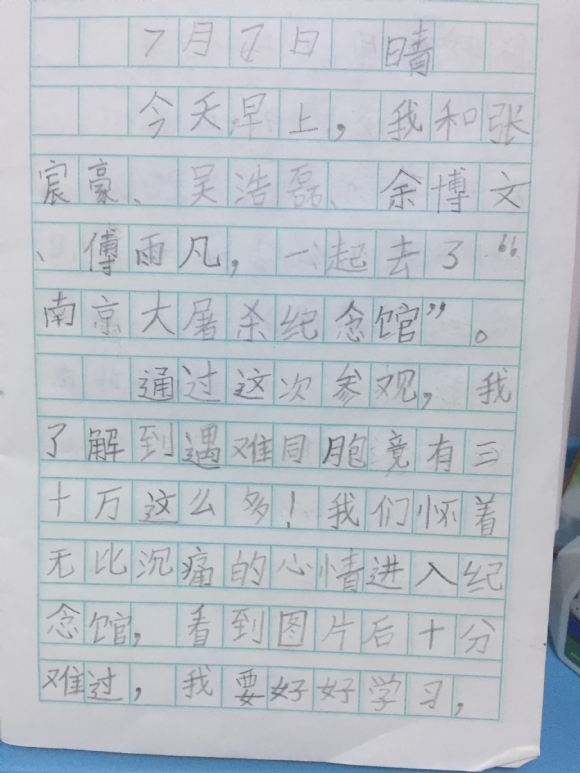 7月7日 晴
今天早上，我和张
宸豪、吴浩磊、余博文
、傅雨凡，一起去了“
南京大屠杀纪念馆”。
通过这次参观，我
了解到遇难同胞竟有三
十万这么多！我们怀着
无比沉痛的心情进入纪
念馆，看到图片后十分
难过，我要好好学习，